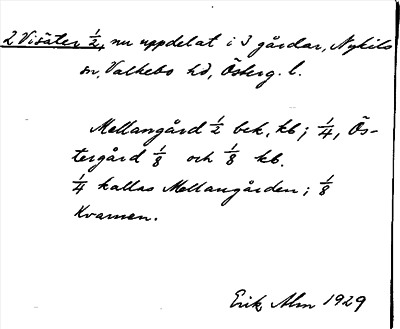 2 Visäter ½, nu uppdelat i 3 gårdar, Nykils
sn, Valkebo hd, Österg. l.
Mellangård ½ bek, kb; ¼, Ös-
tergård ⅛ och ⅛ kb.
¼ kallas Mellangården; ⅛
Kvarnen.
Erik Alm 1929